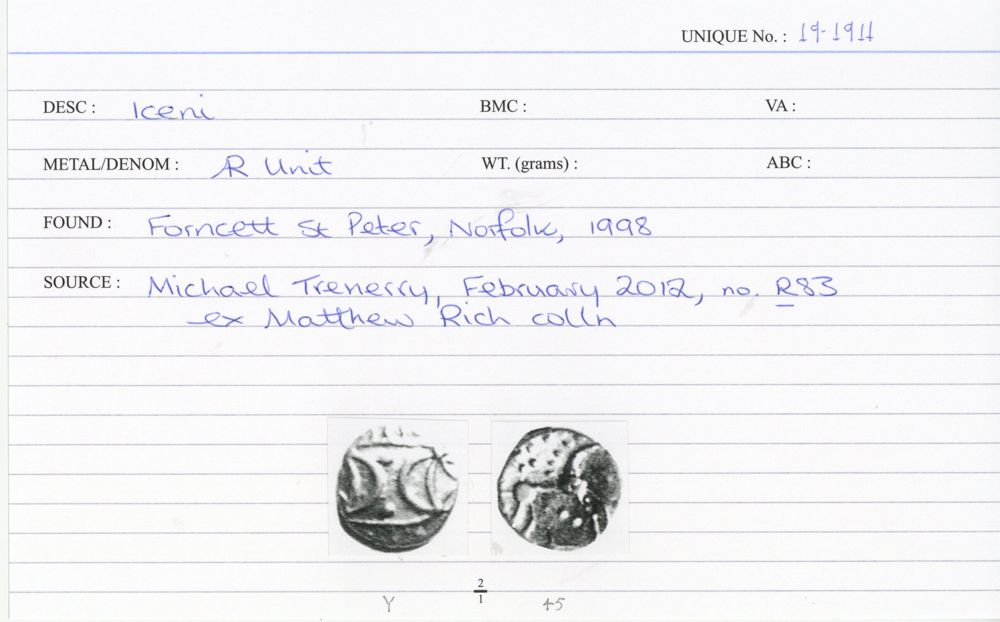 UNIQUE No. : 19-1911
DESC : Iceni BMC : VA :
METAL/DENOM : AR Unit WT. (grams) : ABC :
FOUND : Forncett St Peter, Norfolk, 1998
SOURCE : Michael Trenerry, February 2012, no. R83
ex Matthew Rich colln
2
1
Y 45